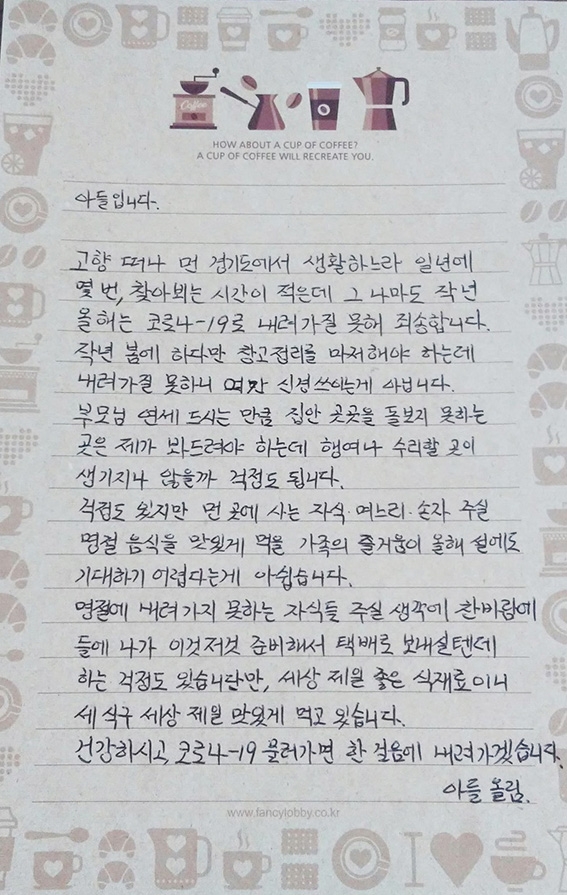 Coffee
HOW ABOUT A CUP OF COFFEE?
A CUP OF COFFEE WILL RECREATE YOU.
아들입니다.
고향 떠나 먼 경기도에서 생활하느라 일년에
몇 번, 찾아뵈는 시간이 적은데 그 나마도 작년
올해는 코로나-19로 내려가질 못해 죄송합니다.
작년 봄에 하다만 창고정리를 마저해야 하는데
내려가질 못하니 여간 신경쓰이는게 아닙니다.
부모님 연세 드시는 만큼 집안 곳곳을 돌보지 못하는
곳은 제가 봐드려야 하는데 행여나 수리할 곳이
생기지나 않을까 걱정도 됩니다.
걱정도 있지만 먼 곳에 사는 자식·며느리·손자 주실
명절 음식을 맛있게 먹을 가족의 즐거움이 올해 설에도
기대하기 어렵다는게 아쉽습니다.
명절에 내려가지 못하는 자식들 주실 생각에 찬바람에
들에 나가 이것저것 준비해서 택배로 보내실텐데
하는 걱정도 있습니단만, 세상 제일 좋은 식재료이니
세식구 세상 제일 맛있게 먹고 있습니다.
건강하시고 코로나-19 물러가면 한 걸음에 내려가겠습니다.
아들 올림.
www.fancylobby.co.kr
I